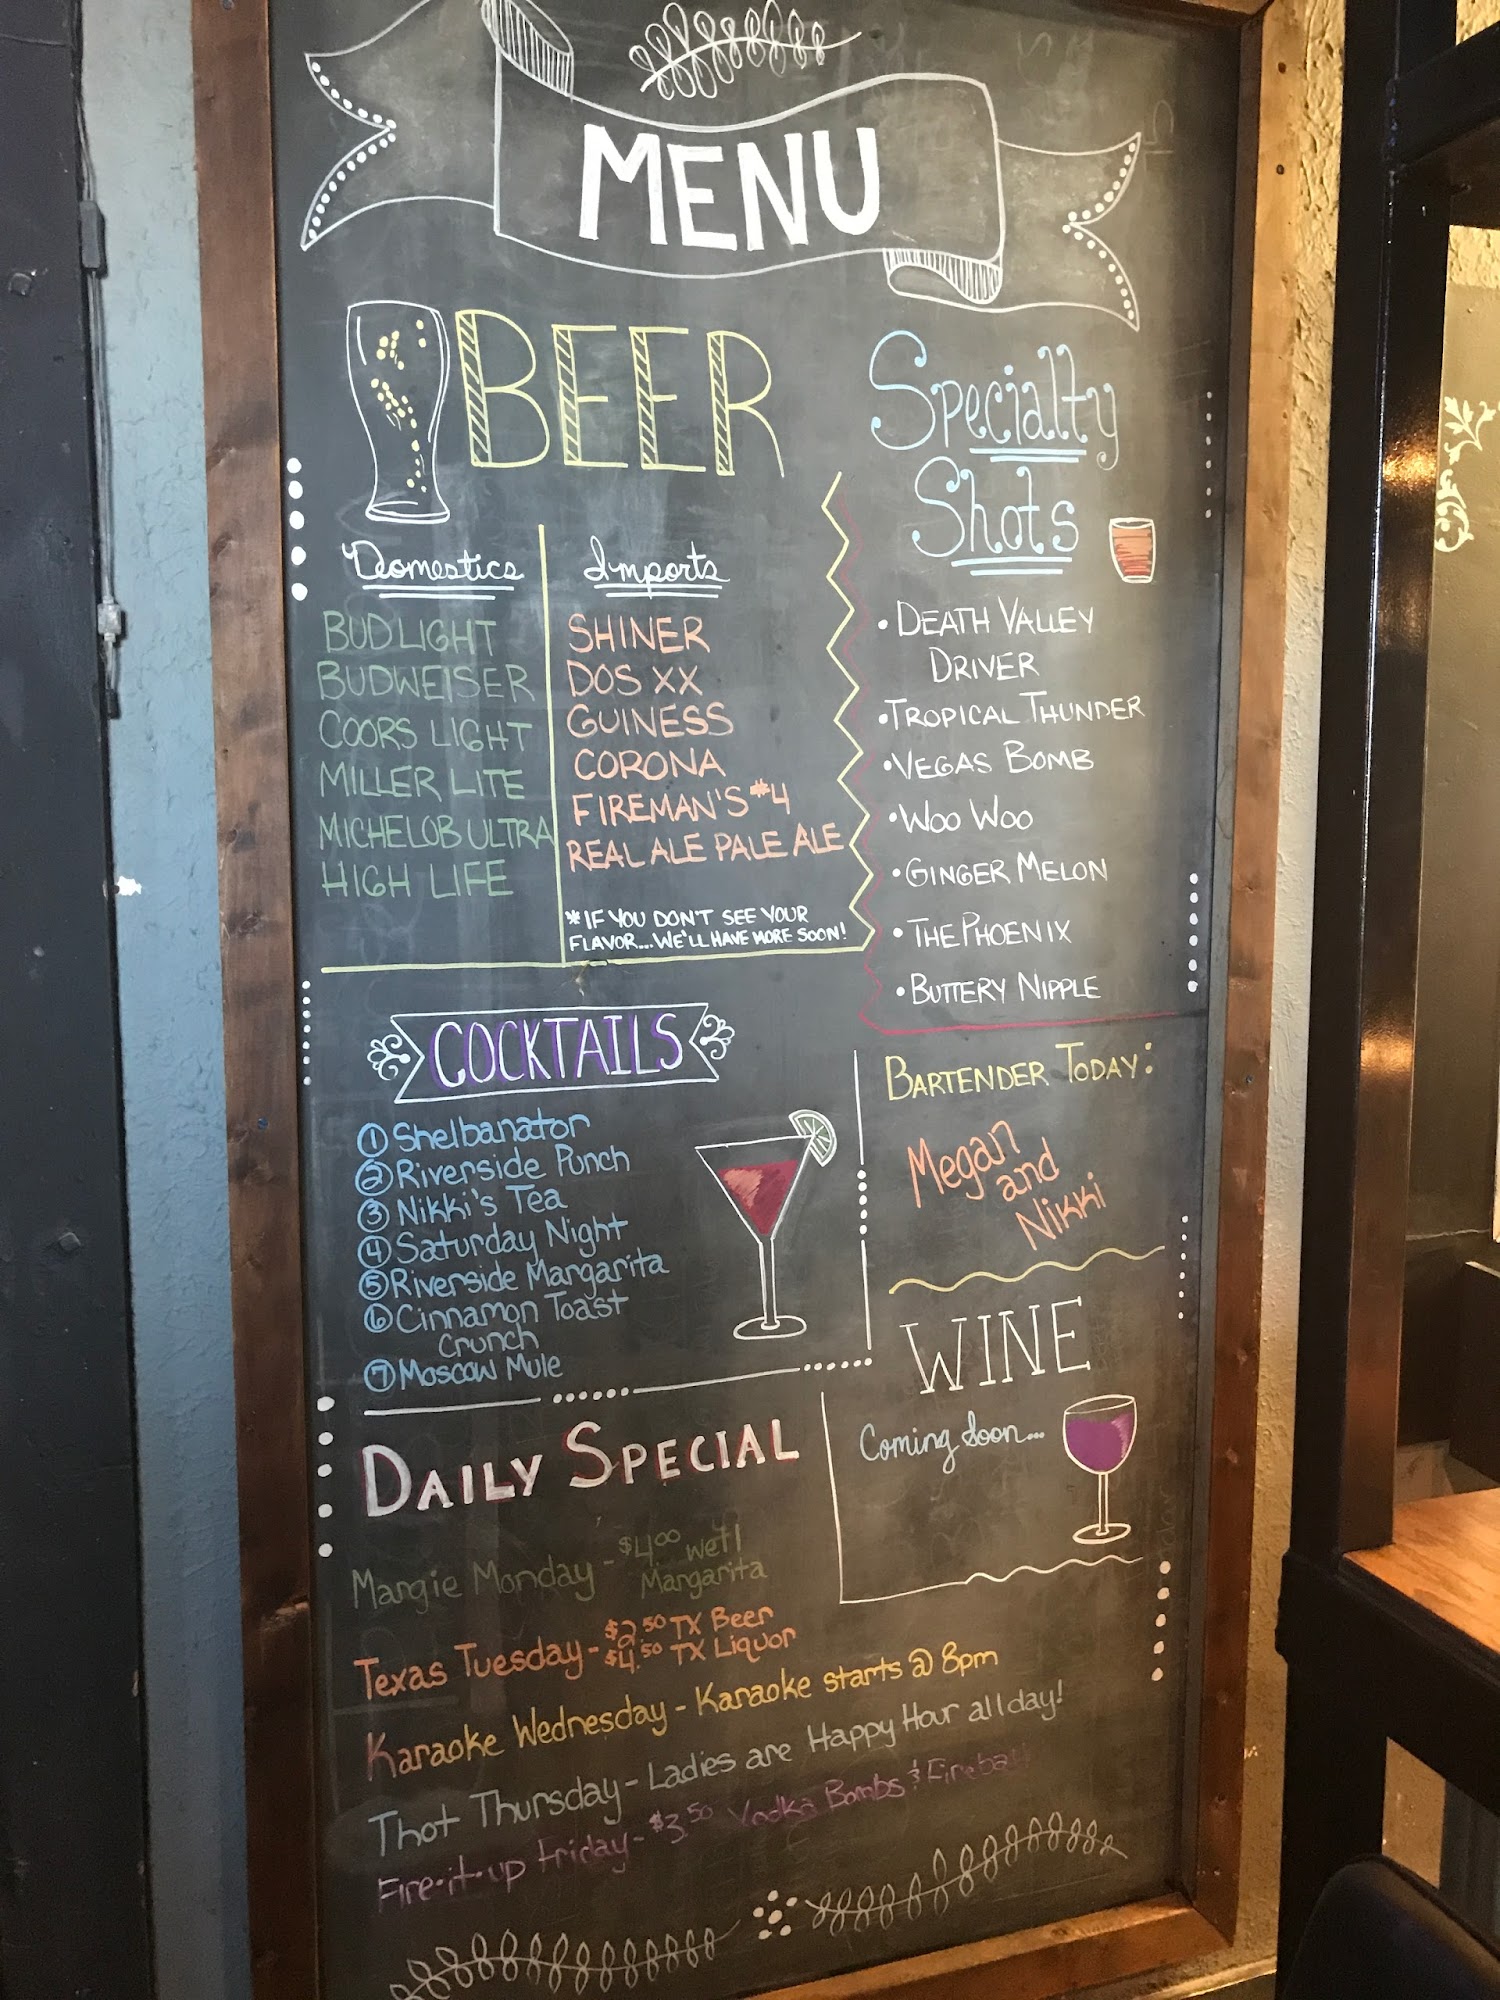 MENU
BEER
Domestics
BUD LIGHT
BUDWEISER
COORS LIGHT
MILLER LITE
MICHELOB ULTRA
HIGH LIFE
Imports
SHINER
DOS XX
GUINESS
CORONA
FIREMAN'S #4
REAL ALE PALE ALE
*IF YOU DON'T SEE YOUR
FLAVOR...WE'LL HAVE MORE SOON!
Specialty
Shots
• DEATH VALLEY
DRIVER
• TROPICAL THUNDER
• VEGAS BOMB
• WOO WOO
• GINGER MELON
• THE PHOENIX
• BUTTERY NIPPLE
COCKTAILS
① Shelbanator
② Riverside Punch
③ Nikki's Tea
④ Saturday Night
⑤ Riverside Margarita
⑥ Cinnamon Toast
Crunch
⑦ Moscow Mule
BARTENDER TODAY:
Megan
and
Nikki
WINE
Coming Soon...
DAILY SPECIAL
Margie Monday - $4.00 well
Margarita
Texas Tuesday - $2.50 TX Beer
$4.50 TX Liquor
Karaoke Wednesday - Karaoke starts @ 8pm
Thot Thursday - Ladies are Happy Hour all day!
Fire-it-up Friday - $3.50 Vodka Bombs & Fireball